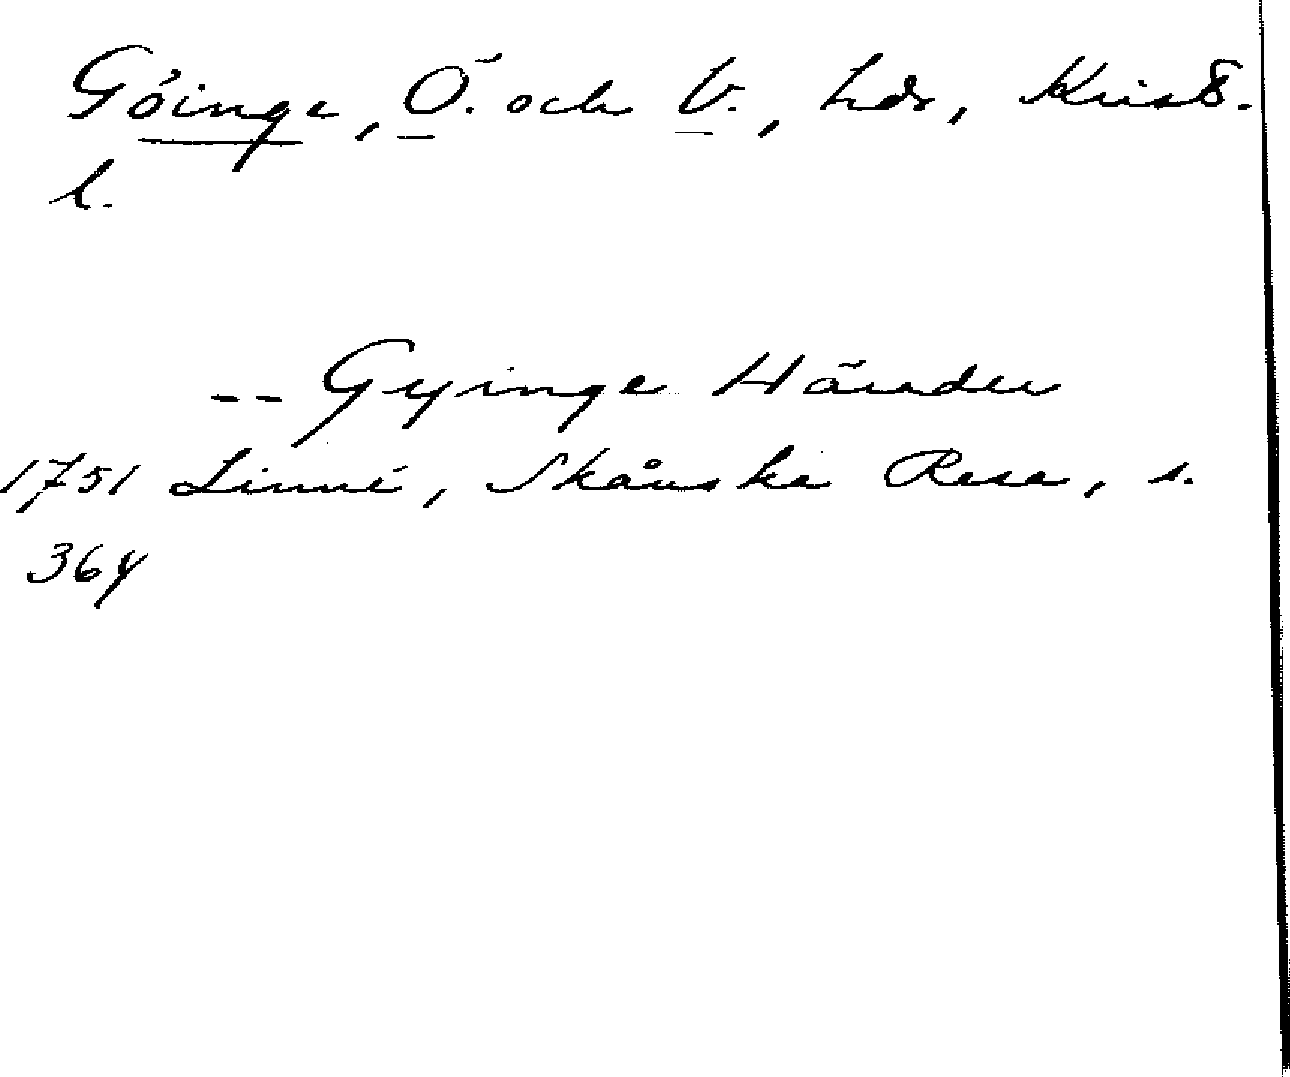 Göinge, Ö. och V., hdr, Krist.
l.
-- Gyinge Härader
1751 Linné, Skånska Resa, s.
364